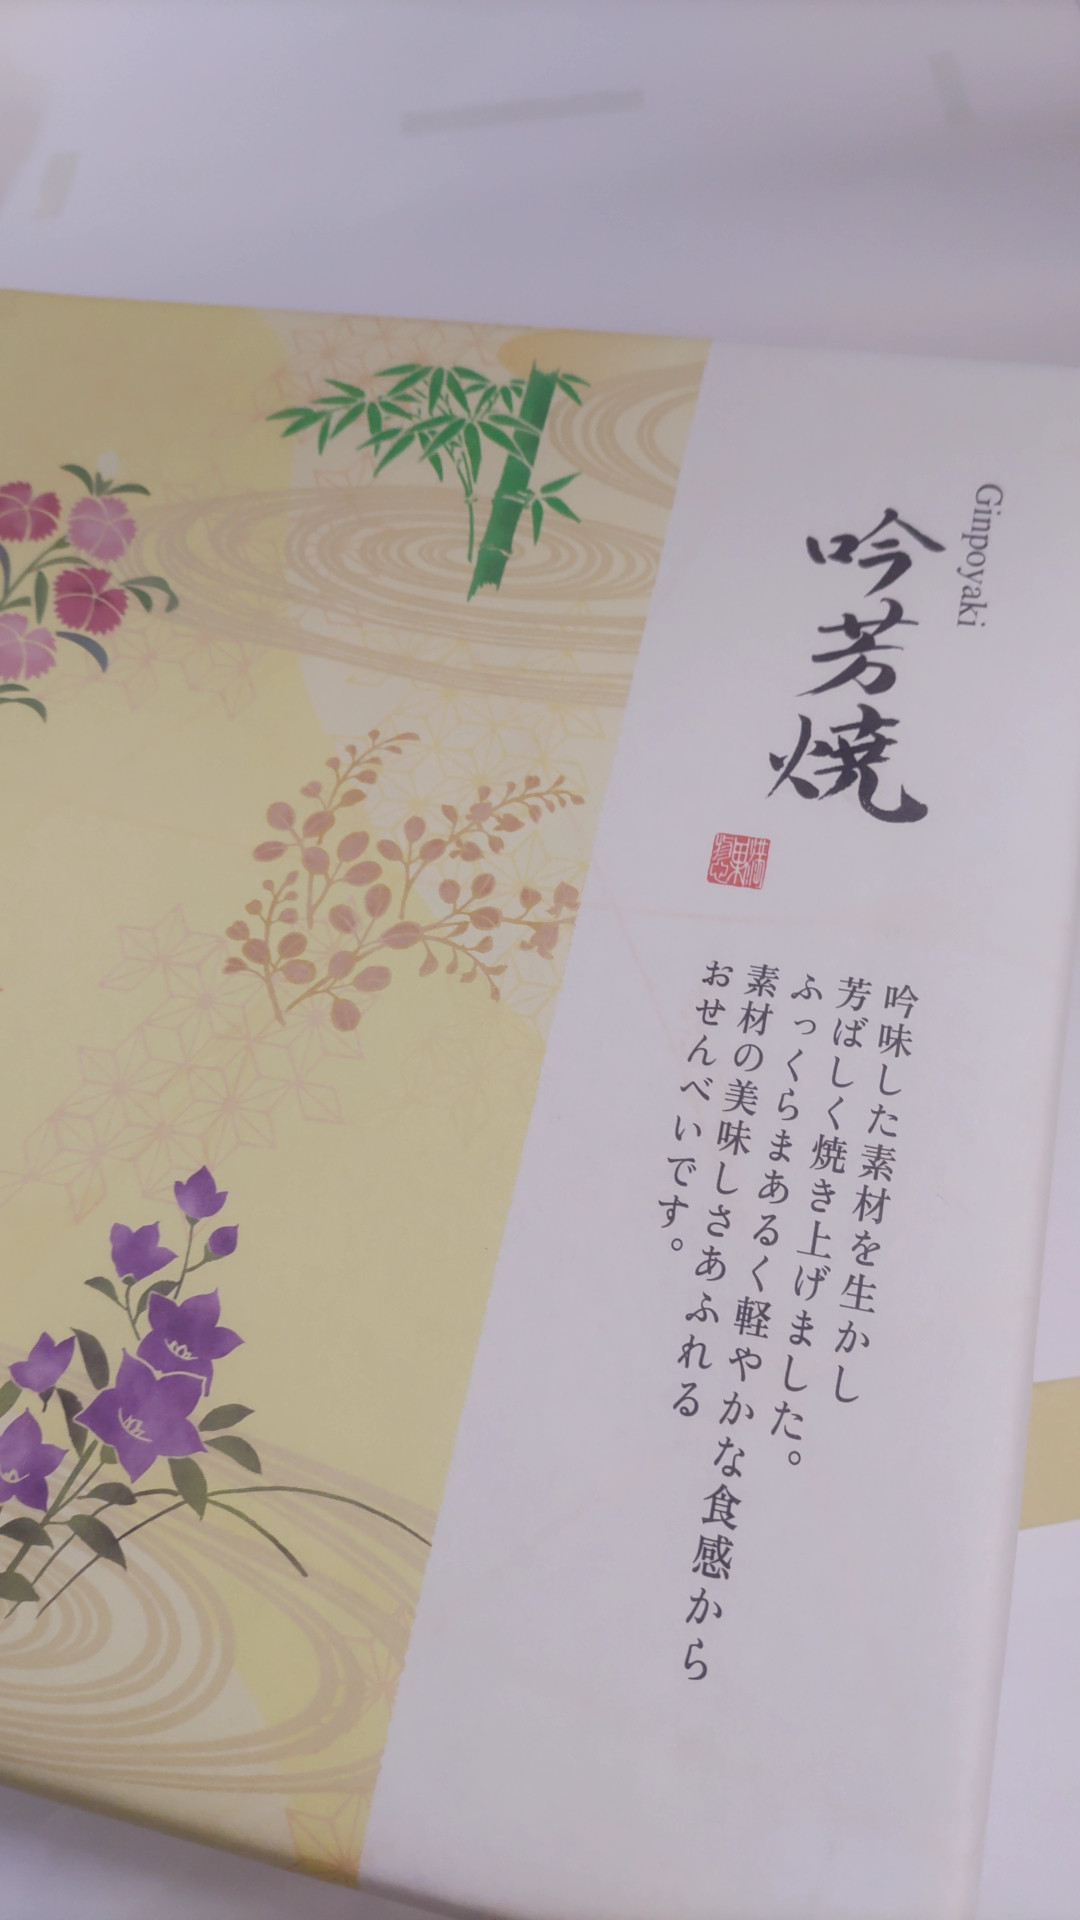 Ginpoyaki
吟芳焼
吟味した素材を生かし
芳ばしく焼き上げました。
ふっくらまあるく軽やかな食感から
素材の美味しさあふれる
おせんべいです。